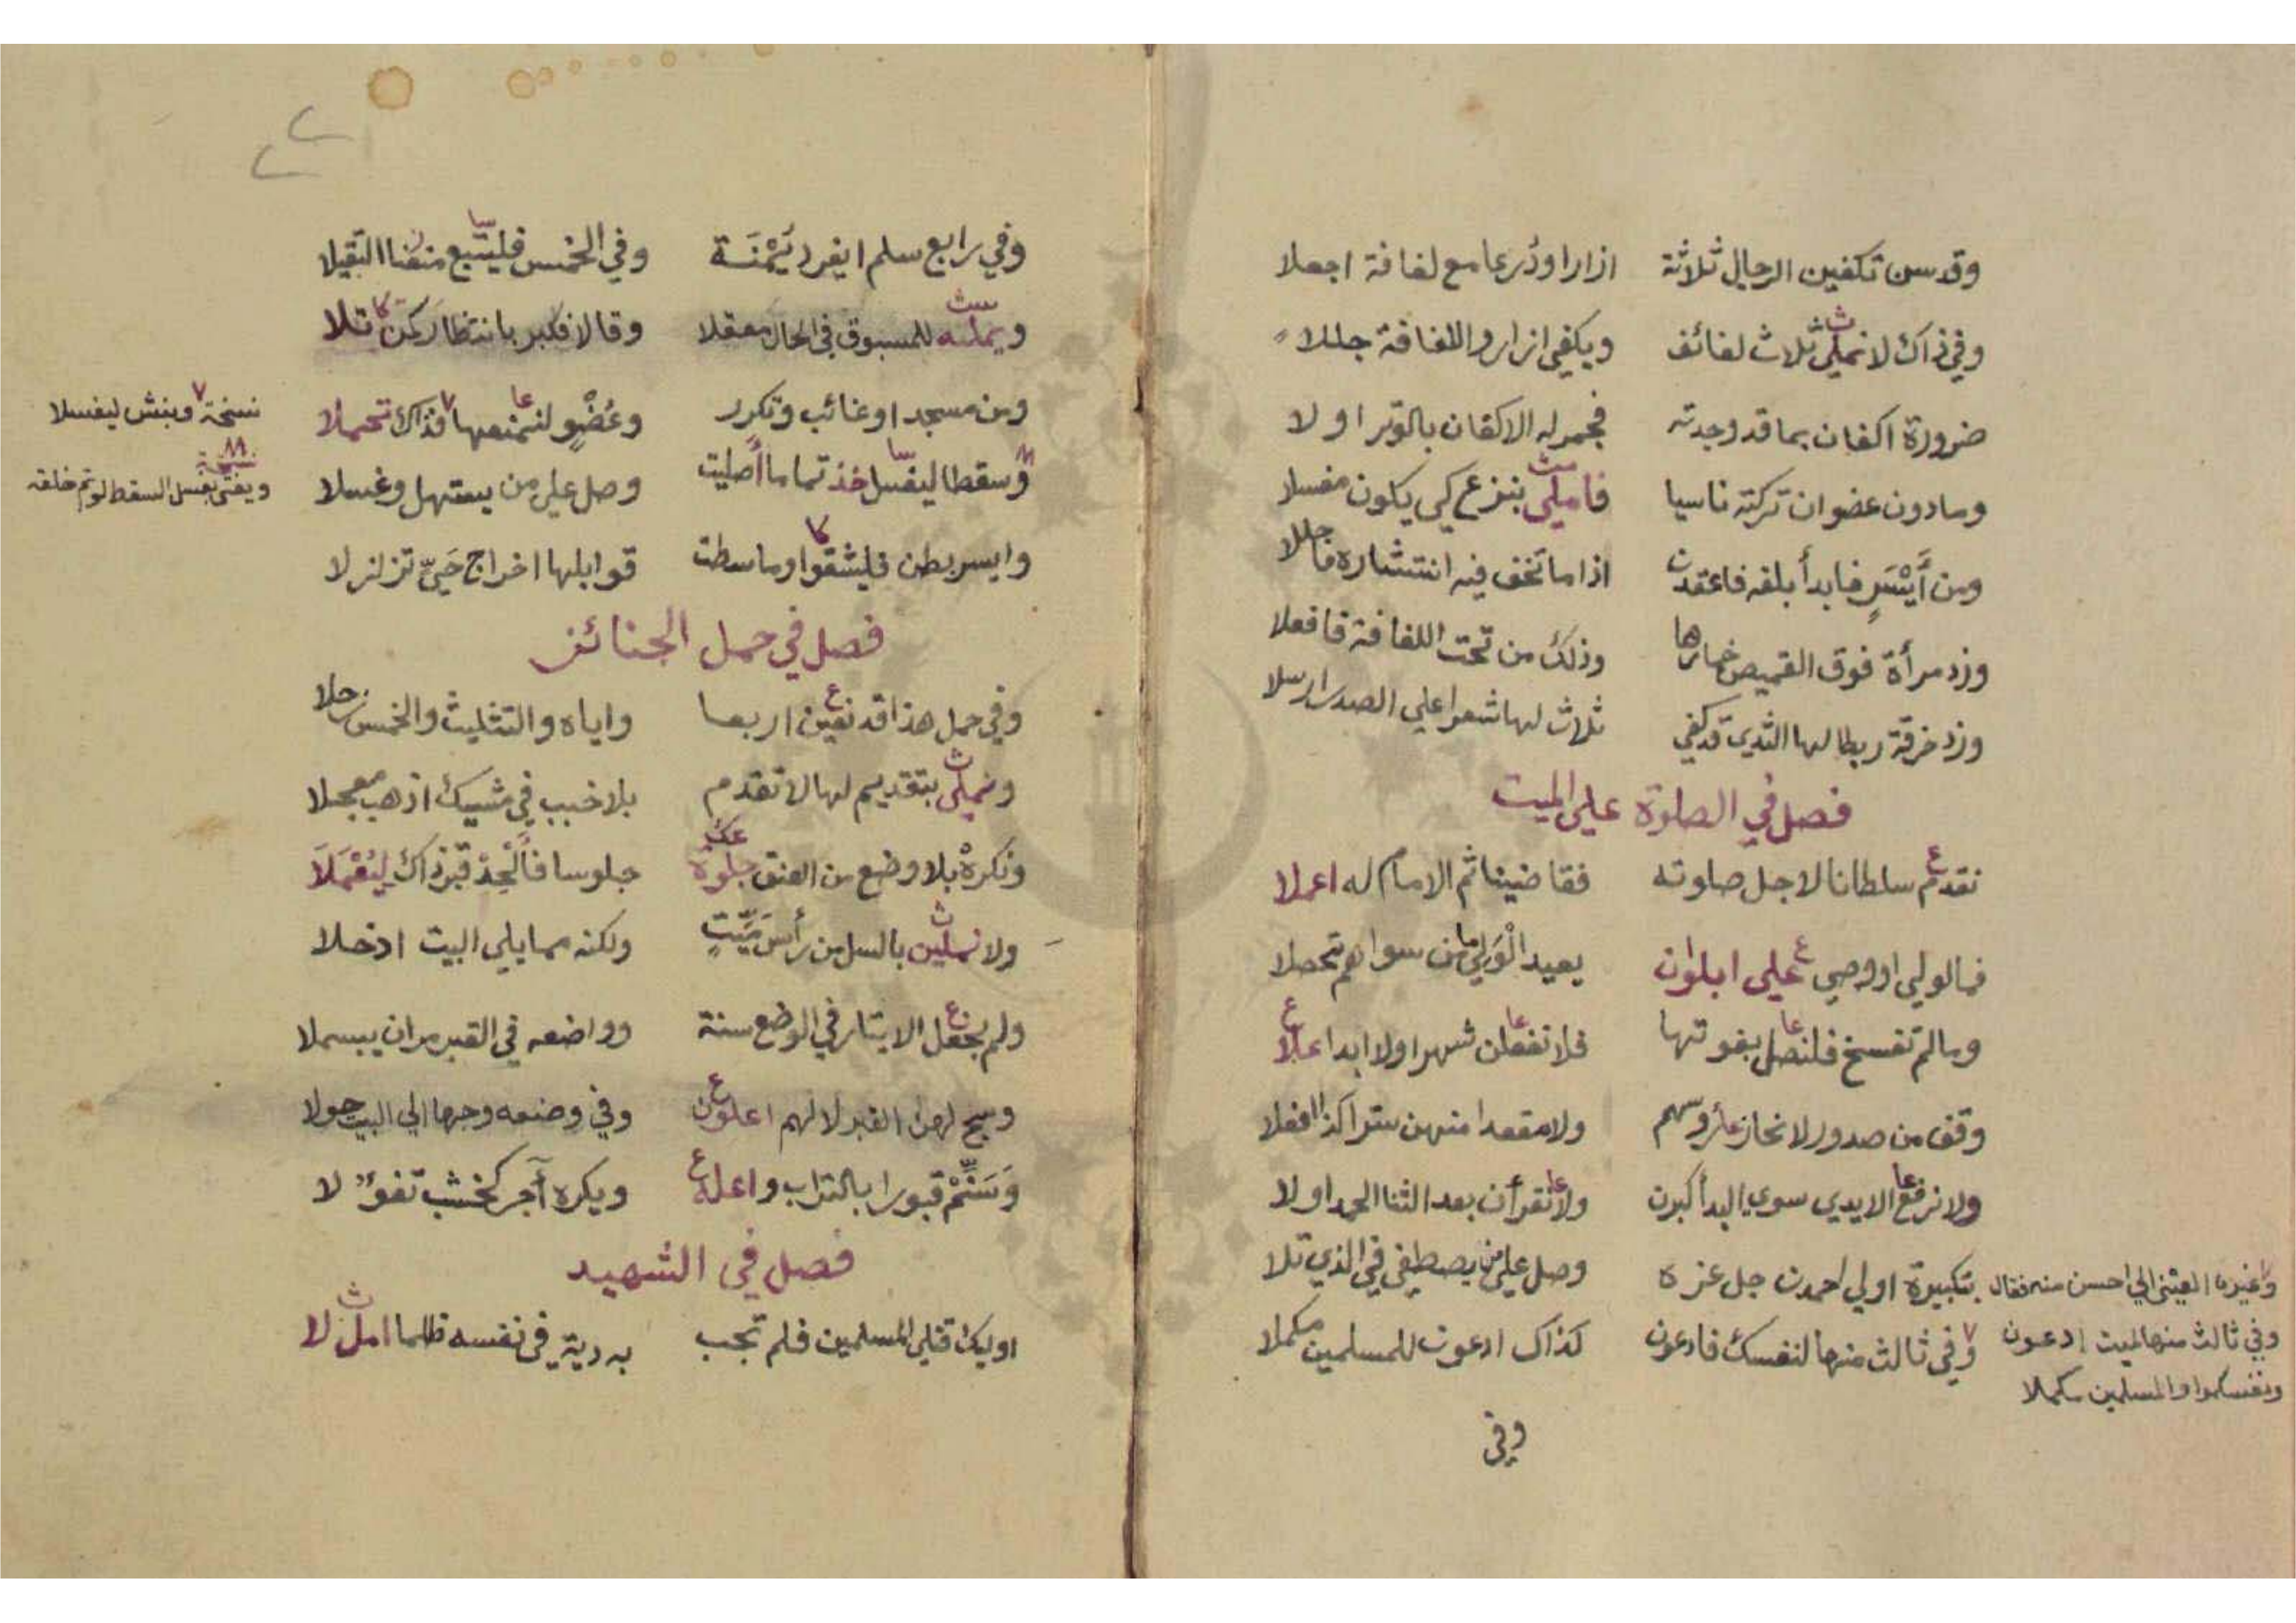 وقد سن تكفين الرجال ثلاثة ازارا ودرعا مع لفافة اجعلا
وفي ذاك لا نملي ثلاث لفائف ويكفي ازار واللفافة جللا
ضرورة اكفان بما قد وجدته فجمر له الاكفان بالوتر اولا
ومادون عضو ان تركته ناسيا فاملي بنزع كي يكون مغسلا
ومن أيسر فابدأ بلفه فاعقدن اذا ما تخف فيه انتشاره
وزد مرأة فوق القميص خمارها وذلك من تحت اللفافة فافعلا
وزد خرقة ربطا لها الثدي قد كفي ثلاث لها شعرا علي الصدر ارسلا
فصل في الصلوة علي الميت
نقدم سلطانا لاجل صلوته فقاضينا ثم الامام له اعملا
فما لولي او وصي علي ابلوان يعيد الولي من سواهم تحصلا
ومالم تفسخ فلنصل بفوتها فلا تفعلن شهرا ولا ابدا علا
وقف من صدور لا نحاز رؤسهم ولا مقعدا منهن ستر اكذا افعلا
ولا نرفع الايدي سوي البدأ كبرن ولا نقرأن بعد الثنا الحمد اولا
بتكبيرة اولي احمدن جل عزه وصل علي من يصطفي في الذي تلا
وفي ثالث منها لنفسك فادعون كذاك ادعون للمسلمين مكملا
وغيره العيني الي احسن منه فقال
وفي ثالث منها لميت ادعون
ونفسكموا والمسلمين مكملا
وفي
وفي رابع سلم ايفرد يمنة وفي الخمس فليتبع منفنا التقيلا
ويمله للمسبوق في الحال معقلا وقالا فكبر بانتظار ركن تلا
ومن مسجد او غائب وتكرر وعضو لنمنعها فذاك تحملا
نسخة وينبش ليغسلا
وسقطا ليغسل خذ تماما أصليت وصل علي من يستهل وغسلا
نسخة ويفتي بغسل السقط لو تم خلقه
وايسر بطن فليشقوا وما سطت قوابلها اخراج حي تزلزلا
فصل في حمل الجنائز
وفي حمل هذا قد نعين اربعا واياه والتثليث والخمس زحلا
ونملي بتقديم لها لا تقدم بلا خبب في مشيك اذهب معجلا
ونكره بلا وضع من العنق جلوة جلوسا فألحد قبر ذاك ليعملا
ولا نملين بالسل من رأس ميت ولكنه مما يلي البيت ادخلا
ولم يجعل الايتار في الوضع سنة وواضعه في القبر مران يبسملا
وسج لهن القبر لا لهم اعلون وفي وضعه وجها الي البيت حولا
وسنم قبورا بالتراب واعله ويكره آجر كخشب تفؤلا
فصل في الشهيد
اوليك قتلي المسلمين فلم تجب به دية في نفسه ظلما امل لا